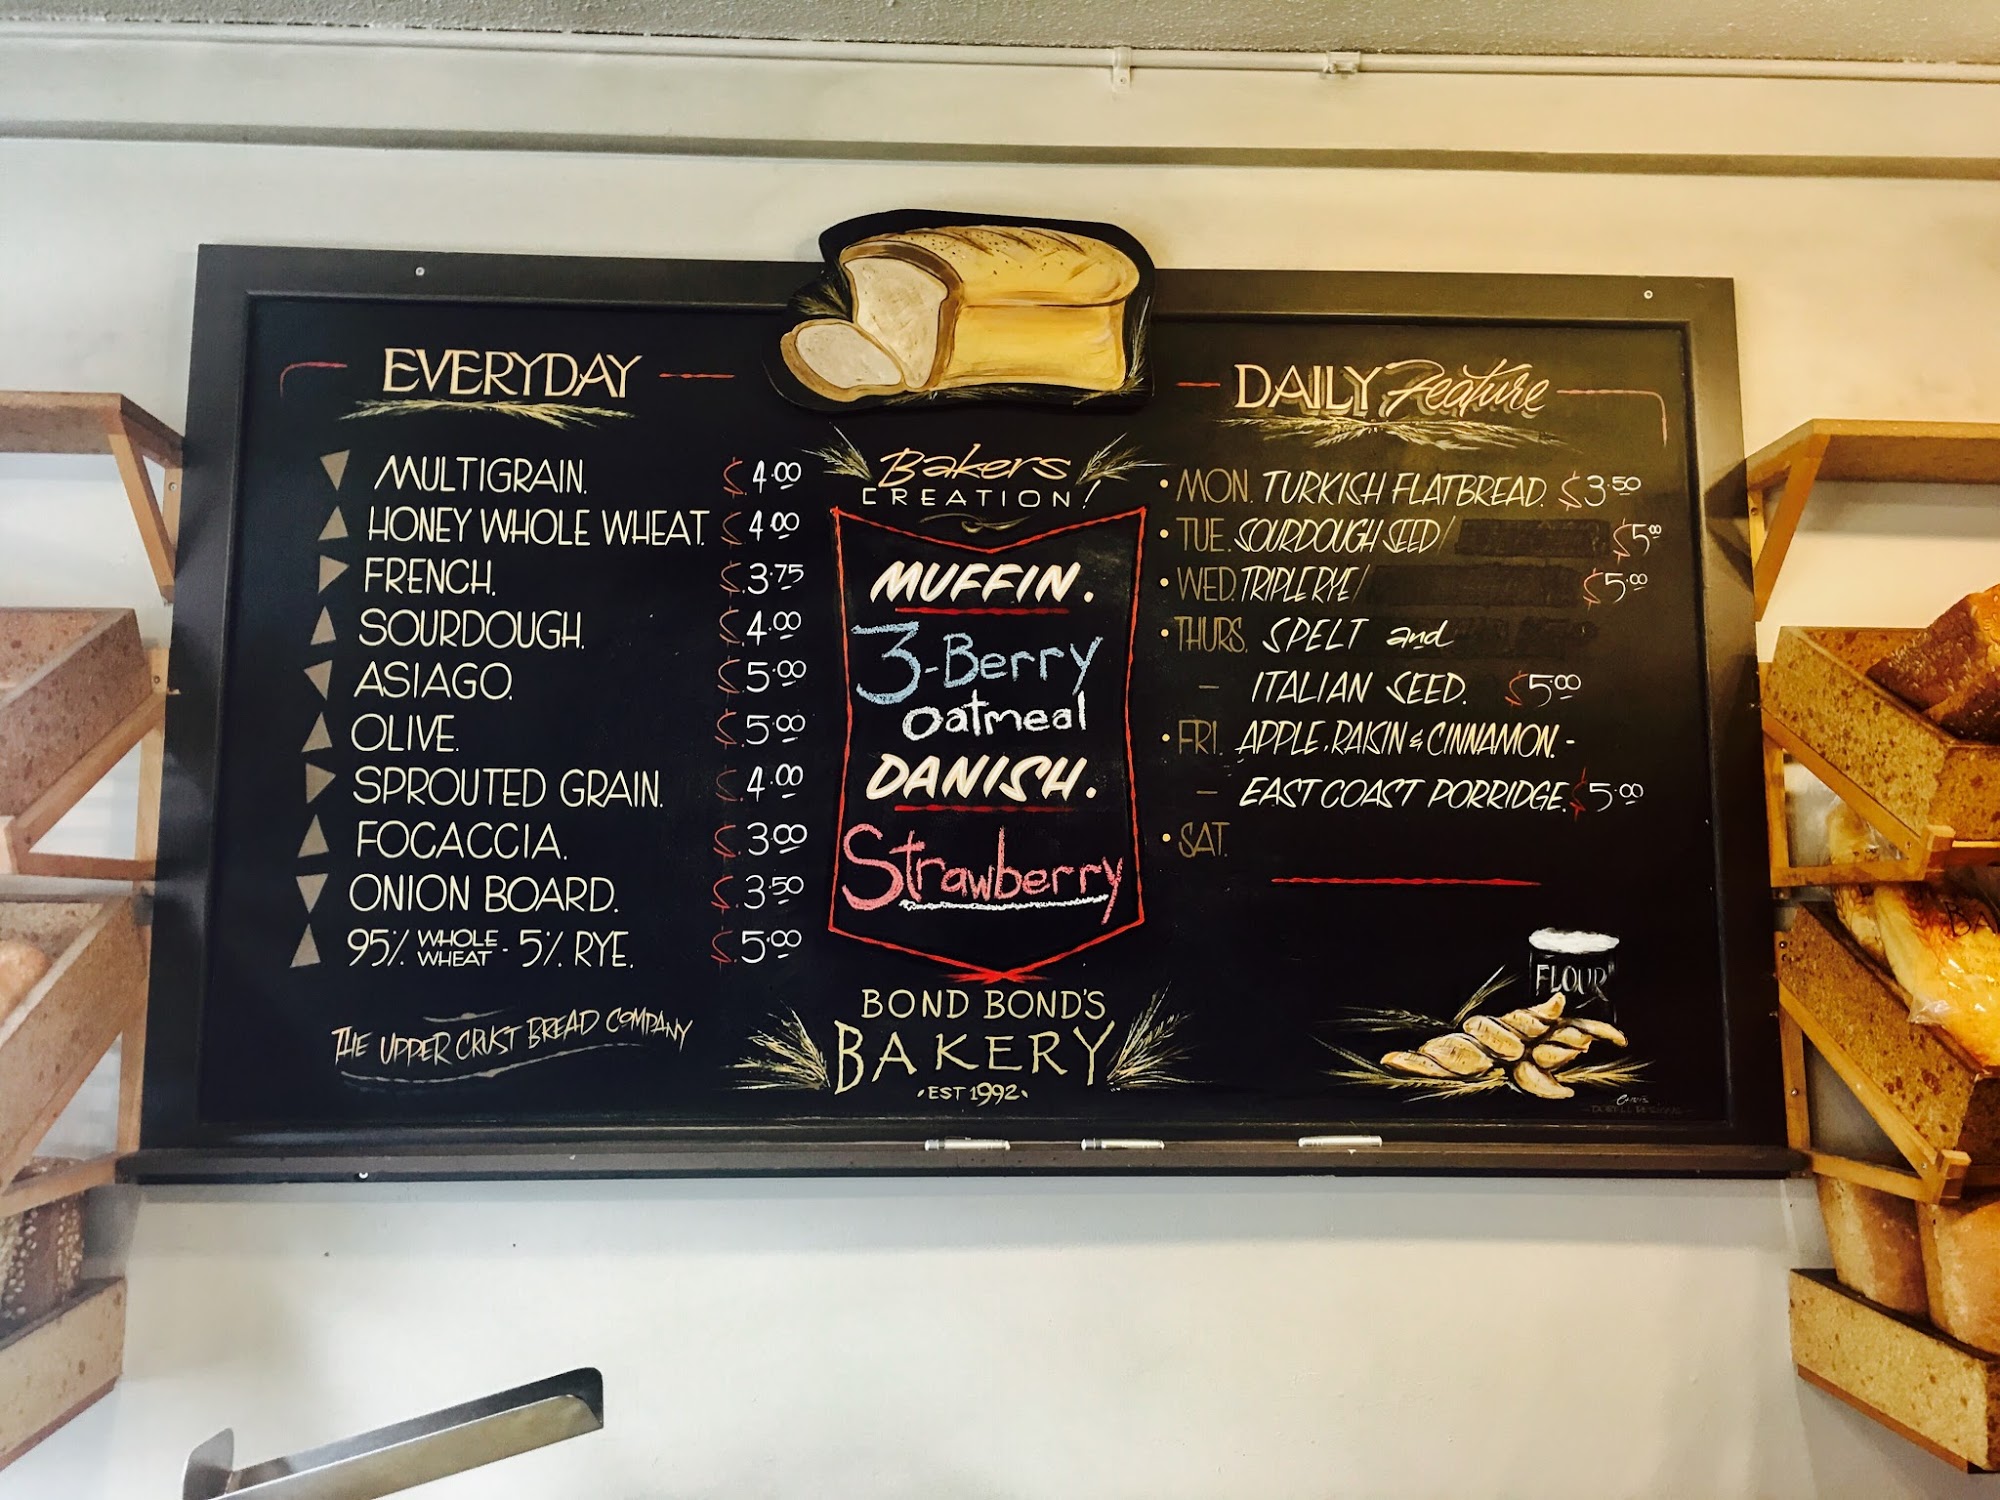 EVERYDAY
MULTIGRAIN. $4.00
HONEY WHOLE WHEAT. $4.00
FRENCH. $3.75
SOURDOUGH. $4.00
ASIAGO. $5.00
OLIVE. $5.00
SPROUTED GRAIN. $4.00
FOCACCIA. $3.00
ONION BOARD. $3.50
95% WHOLE WHEAT - 5% RYE. $5.00
THE UPPER CRUST BREAD COMPANY
Bakers
CREATION!
MUFFIN.
3-Berry
oatmeal
DANISH.
Strawberry
BOND BOND'S
BAKERY
•EST 1992•
DAILY Feature
• MON. TURKISH FLATBREAD. $3.50
• TUE. SOURDOUGH SEED/ $5.00
• WED. TRIPLE RYE/ $5.00
• THURS. SPELT and
— ITALIAN SEED. $5.00
• FRI. APPLE, RAISIN & CINNAMON. -
— EAST COAST PORRIDGE. $5.00
• SAT.
FLOUR